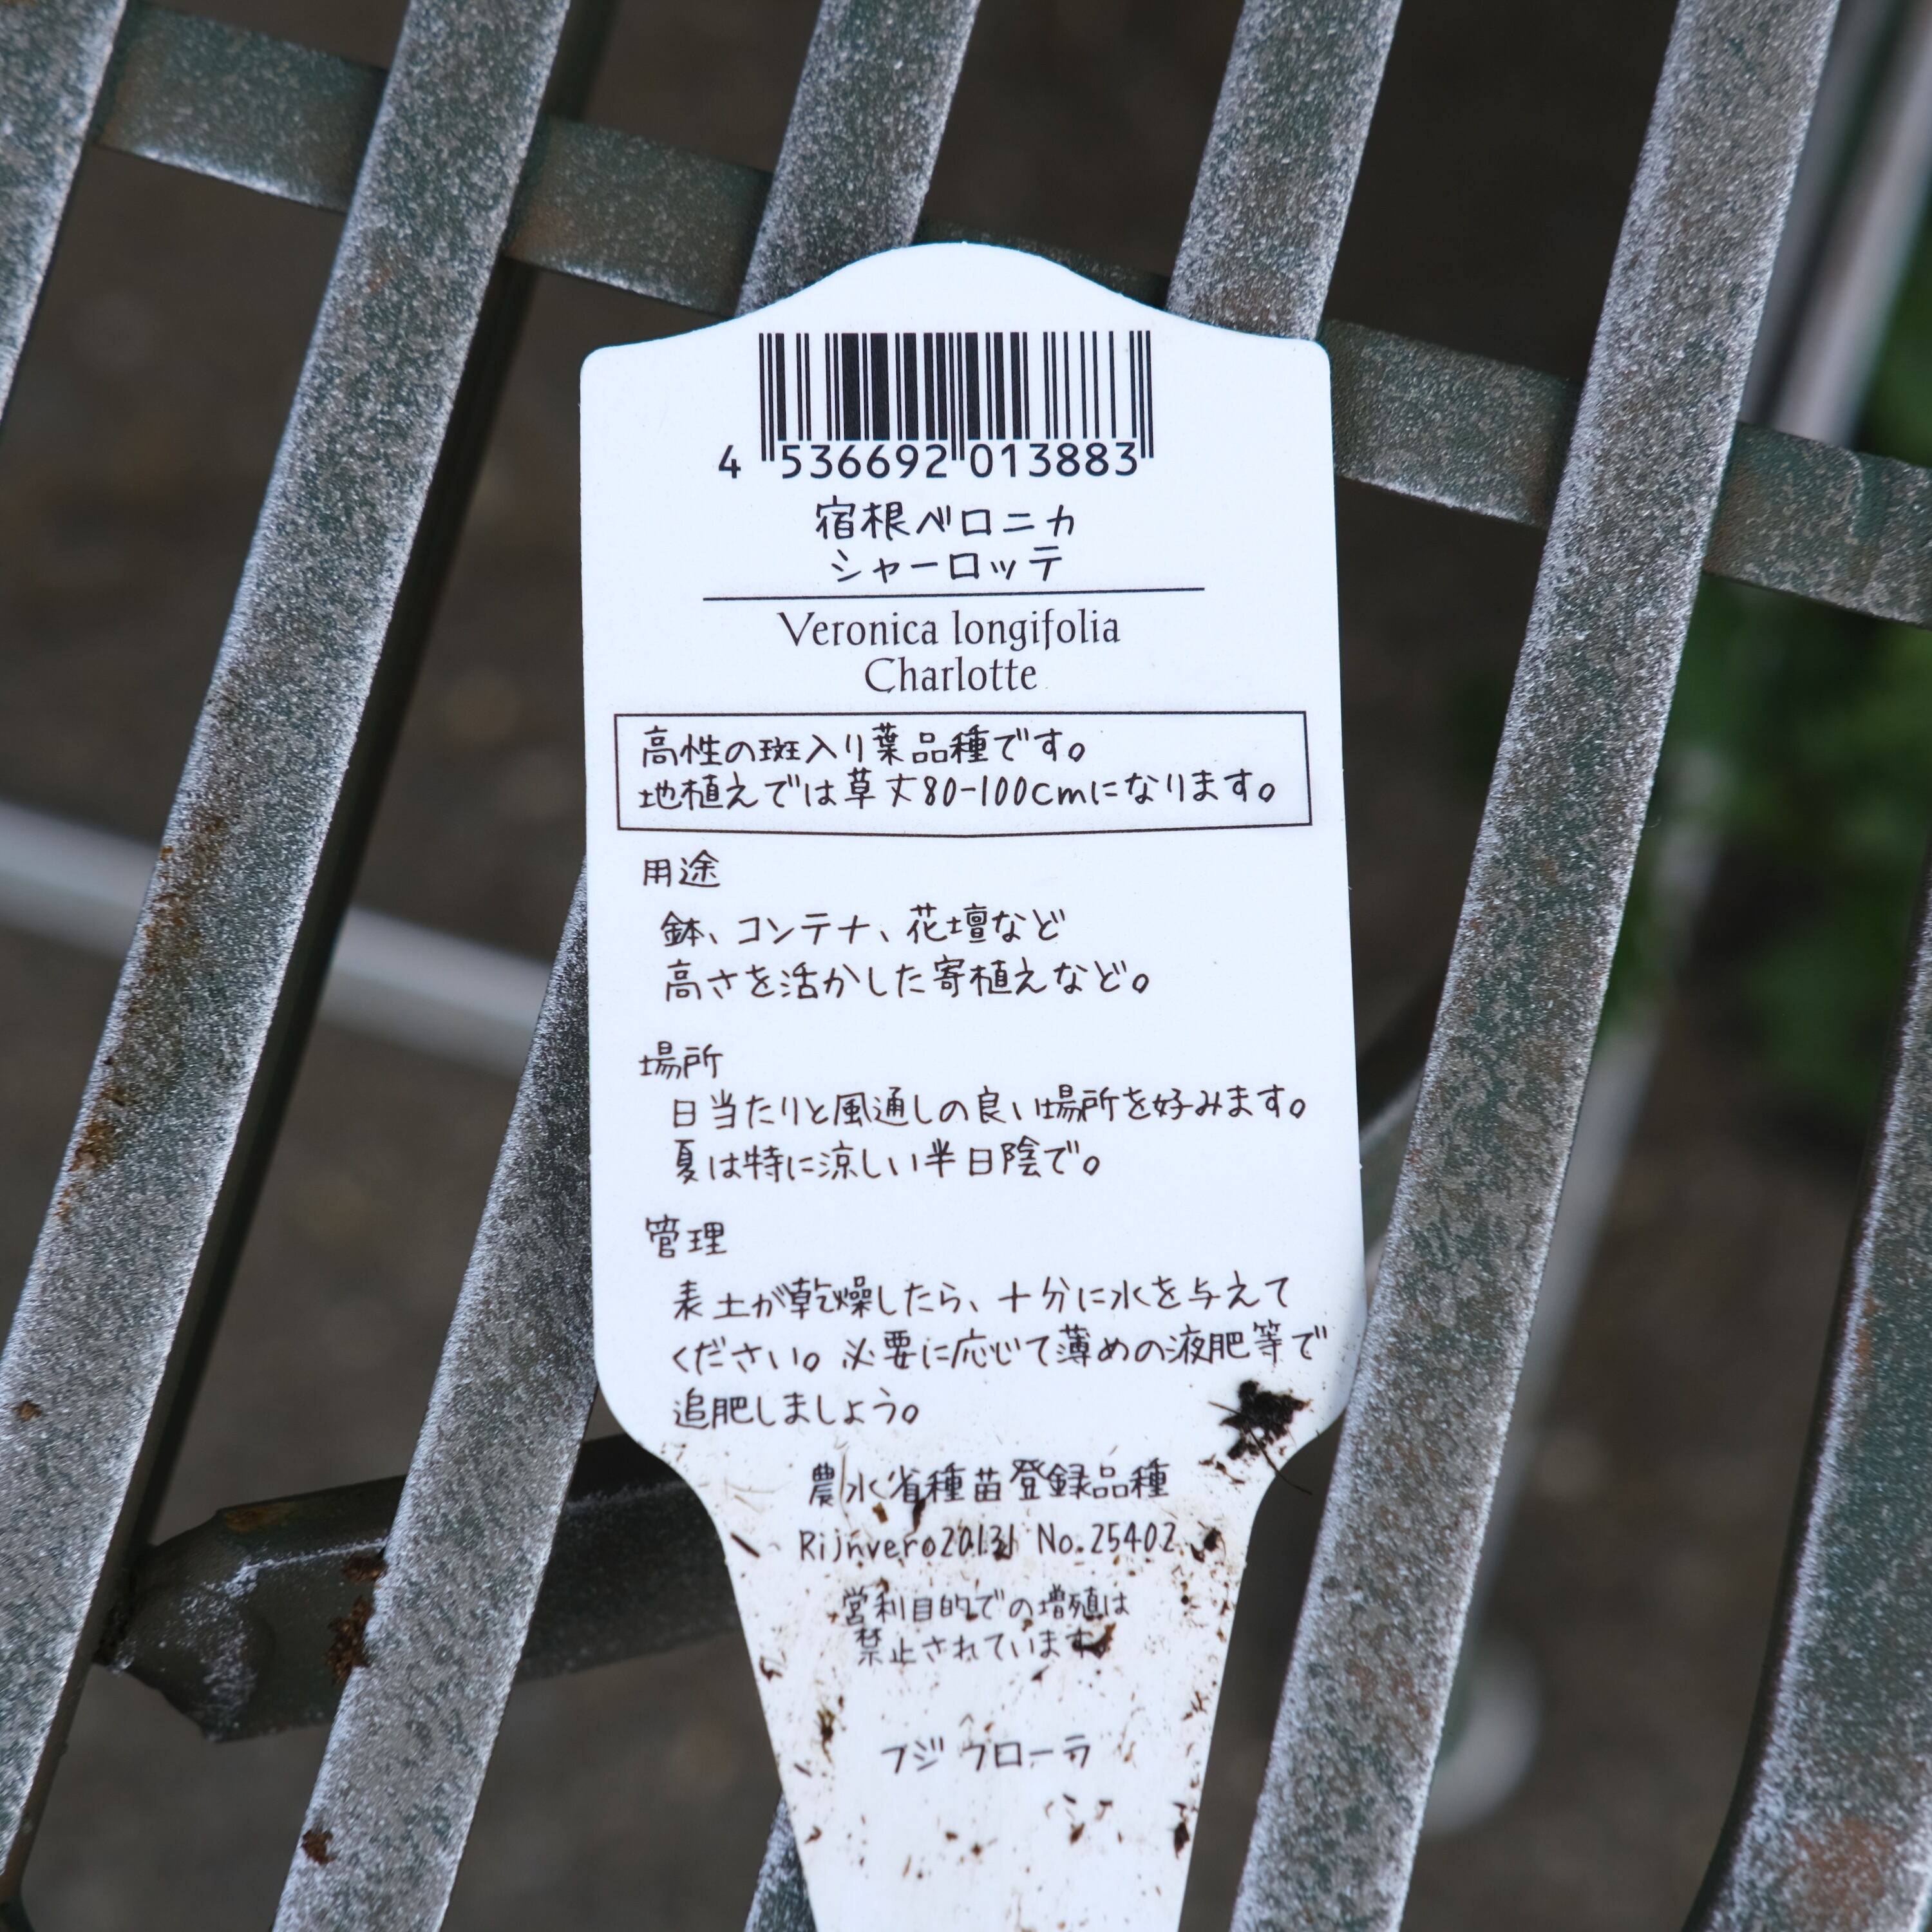 4 536692 013883
宿根ベロニカ
シャーロッテ
Veronica longifolia
Charlotte
高性の斑入り葉品種です。
地植えでは草丈80-100cmになります。
用途
鉢、コンテナ、花壇など
高さを活かした寄植えなど。
場所
日当たりと風通しの良い場所を好みます。
夏は特に涼しい半日陰で。
管理
表土が乾燥したら、十分に水を与えて
ください。必要に応じて薄めの液肥等で
追肥しましょう。
農水省種苗登録品種
Rijnvero20131 No.25402
営利目的での増殖は
禁止されています
フジフローラ